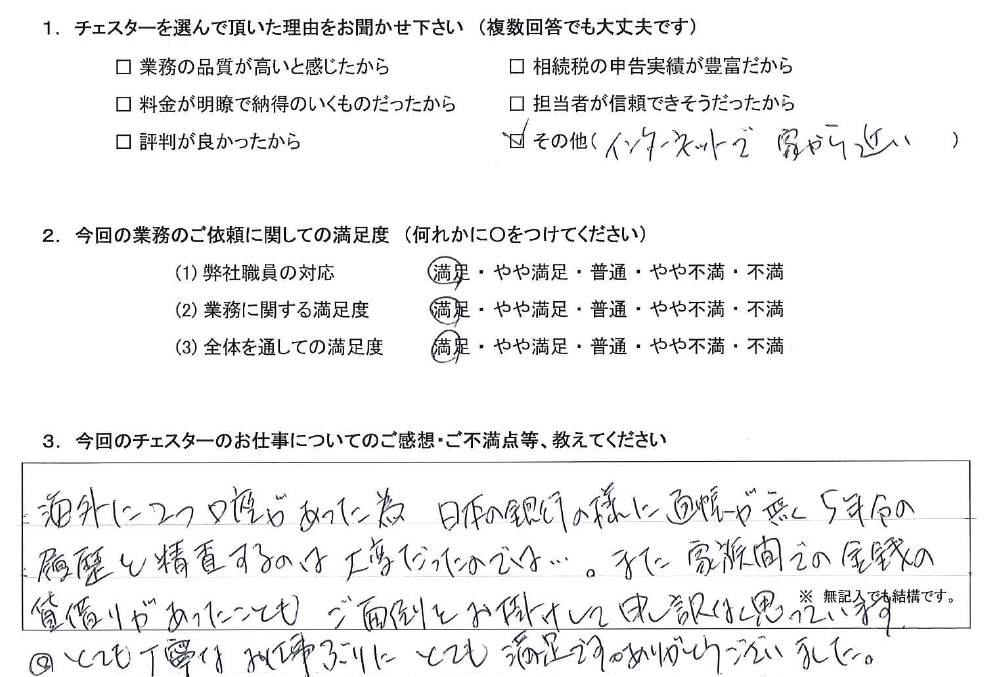 1. チェスターを選んで頂いた理由をお聞かせ下さい (複数回答でも大丈夫です)
□ 業務の品質が高いと感じたから □ 相続税の申告実績が豊富だから
□ 料金が明瞭で納得のいくものだったから □ 担当者が信頼できそうだったから
□ 評判が良かったから ☑ その他( インターネットで 家から近い )
2. 今回の業務のご依頼に関しての満足度 (何れかに〇をつけてください)
(1) 弊社職員の対応 満足・やや満足・普通・やや不満・不満
(2) 業務に関する満足度 満足・やや満足・普通・やや不満・不満
(3) 全体を通しての満足度 満足・やや満足・普通・やや不満・不満
3. 今回のチェスターのお仕事についてのご感想・ご不満点等、教えてください
海外に2つ口座があった為 日本の銀行の様に通帳が無く 5年分の
履歴を精査するのは大変だったのでは…。また家族間での金銭の
貸借りがあったことも ご面倒をお掛けして申し訳なく思っています
※ 無記入でも結構です。
とても丁寧なお仕事ぶりに とても満足です。ありがとうございました。